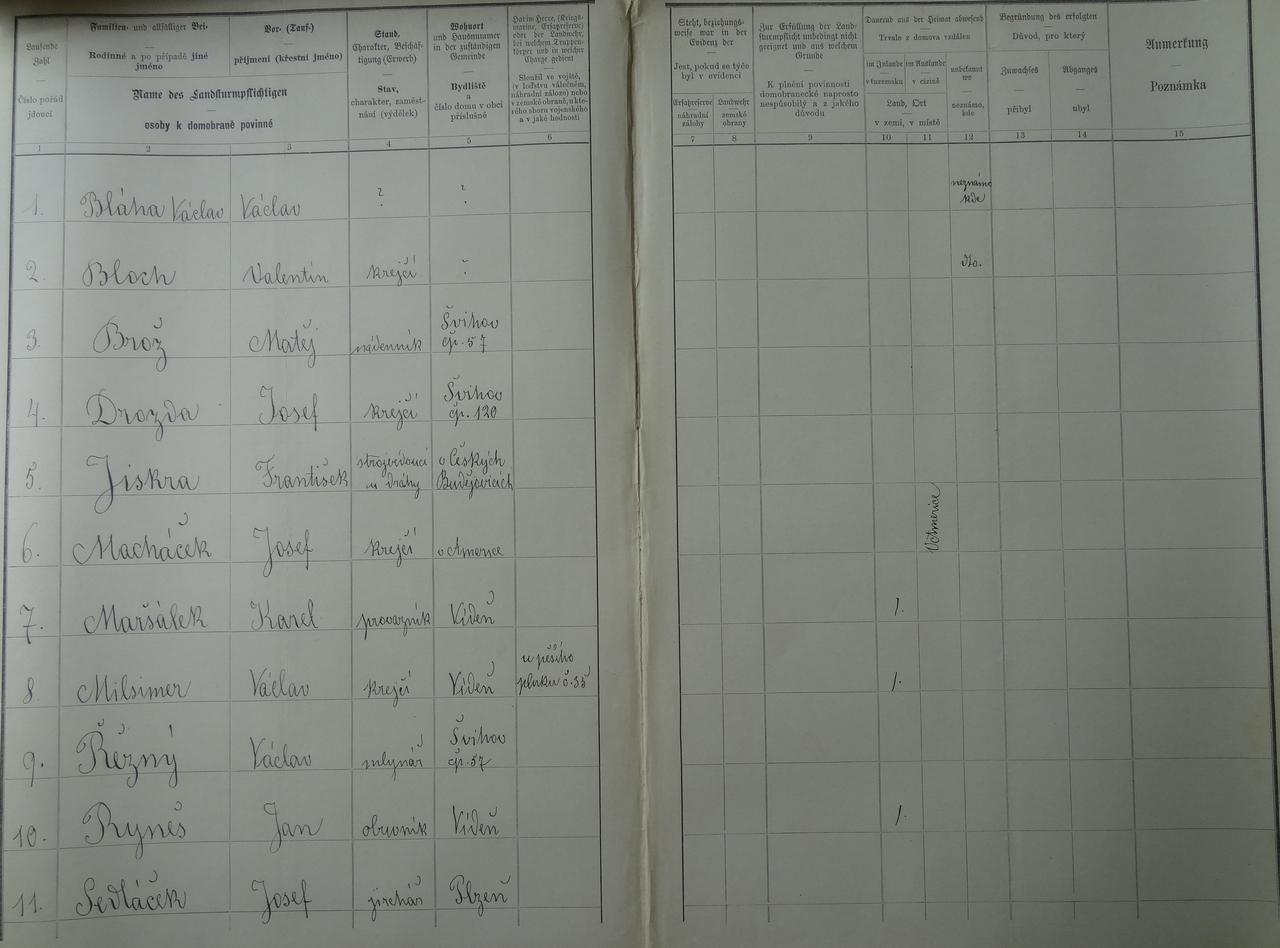 Laufende
Zahl
—
Číslo pořád
jdoucí
Familien- und allfälliger Bei-
—
Rodinné a po případě jiné
jméno
Vor- (Tauf-)
—
příjmení (křestní jméno)
Name des Landsturmpflichtigen
—
osoby k domobraně povinné
Stand,
Charakter, Beschäf-
tigung (Erwerb)
—
Stav,
charakter, zaměst-
nání (výdělek)
Wohnort
und Hausnummer
in der zuständigen
Gemeinde
—
Bydliště
a
číslo domu v obci
příslušné
Hat im Heere, (Kriegs-
marine, Ersatzreserve)
oder der Landwehr,
bei welchem Truppen-
körper und in welcher
Charge gedient
—
Sloužil ve vojště,
(v loďstvu válečném,
náhradní záloze) nebo
v zemské obraně, u kte-
rého sboru vojenského
a v jaké hodnosti
Steht, beziehungs-
weise war in der
Evidenz der
—
Jest, pokud se týče
byl v evidenci
Ersatzreserve
náhradní
zálohy
Landwehr
zemské
obrany
Zur Erfüllung der Land-
sturmpflicht unbedingt nicht
geeignet und aus welchem
Grunde
—
K plnění povinnosti
domobranecké naprosto
nespůsobilý a z jakého
důvodu
Dauernd aus der Heimat abwesend
—
Trvale z domova vzdálen
im Inlande
v tuzemsku
im Auslande
v cizině
Land, Ort
—
v zemi, v místě
unbekannt
wo
—
neznámo,
kde
Begründung des erfolgten
—
Důvod, pro který
Zuwachses
—
přibyl
Abganges
—
ubyl
Anmerkung
—
Poznámka
1 2 3 4 5 6 7 8 9 10 11 12 13 14 15
1. Bláha Václav Václav ? ? neznámo
kde
2. Bloch Valentin krejčí dto.
3. Brož Matěj nádenník Švihov
čp. 57
4. Drozda Josef krejčí Švihov
čp. 120
5. Jiskra František strojvedoucí
u dráhy
v Českých
Budějovicích
6. Macháček Josef krejčí v Americe V Americe
7. Maršálek Karel provazník Vídeň 1.
8. Milsimer Václav krejčí Vídeň u pěšího
pluku č. 35
1.
9. Řezný Václav mlynář Švihov
čp. 57
10. Ryneš Jan obuvník Vídeň 1.
11. Sedláček Josef jirchář Plzeň